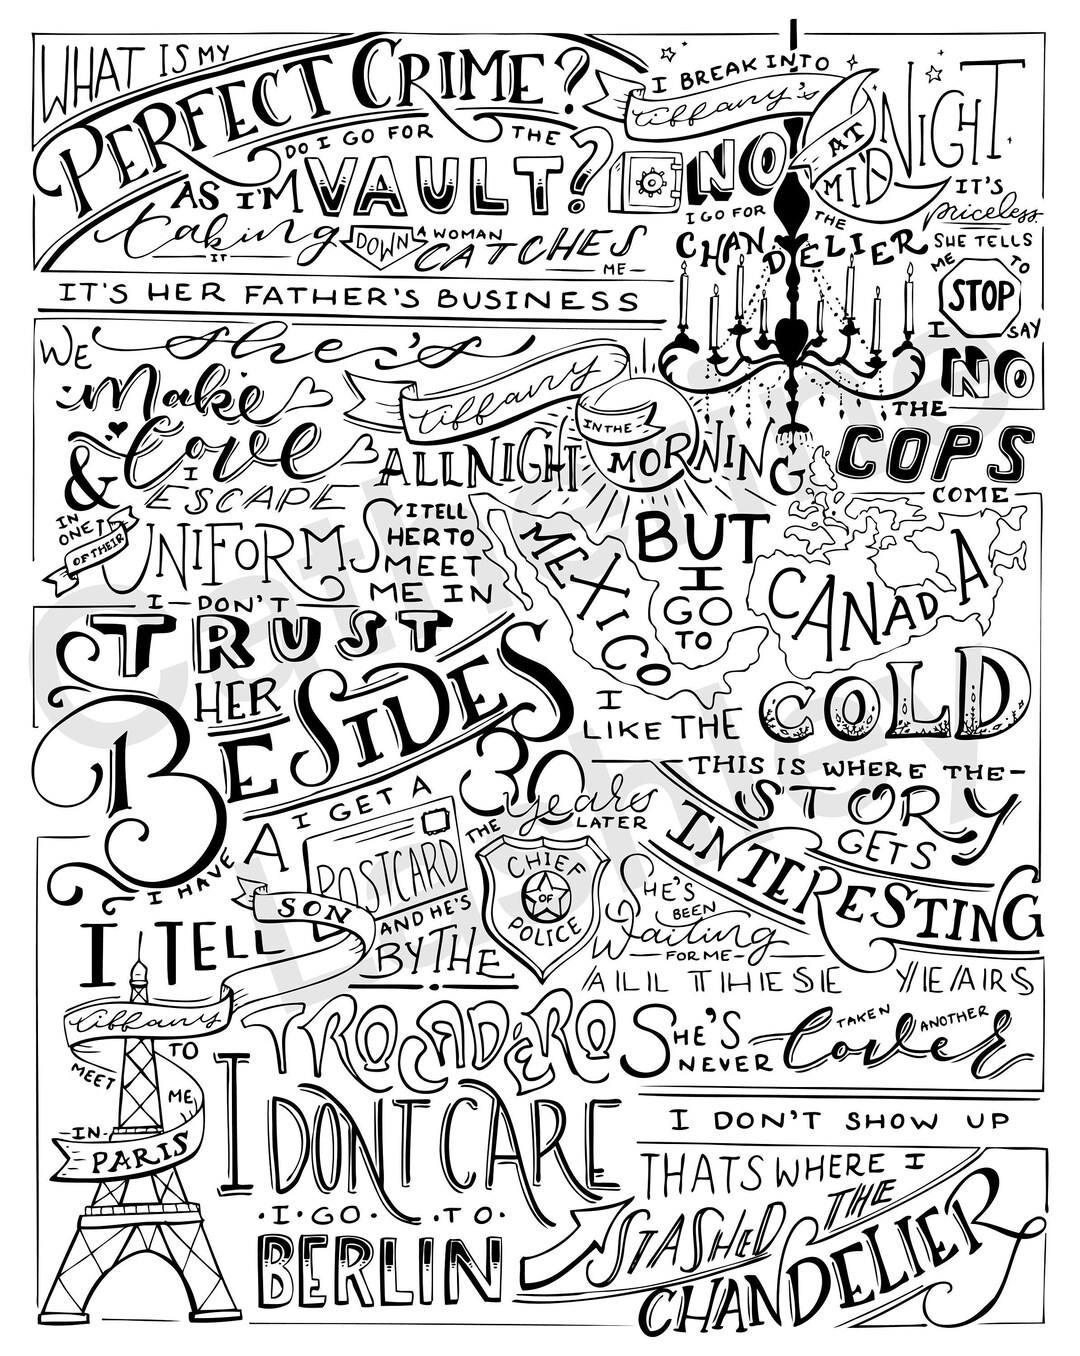 WHAT IS MY
PERFECT CRIME?
I BREAK INTO
tiffany's
AT
MIDNIGHT
DO I GO FOR THE
VAULT?
NO
I GO FOR THE
CHANDELIER
IT'S
priceless
AS I'M
taking
IT
DOWN
A WOMAN
CATCHES
ME
SHE TELLS
ME TO
STOP
IT'S HER FATHER'S BUSINESS
she's
tiffany
I SAY
NO
WE
Make
Love
ALL NIGHT
IN THE
MORNING
THE
COPS
COME
& I
ESCAPE
IN
ONE
OF THEIR
UNIFORMS
I TELL
HER TO
MEET
ME IN
MEXICO
BUT
I
GO
TO
CANADA
I DON'T
TRUST
HER
BESIDES
I
LIKE THE
COLD
30
years
LATER
I GET A
POSTCARD
I HAVE
A
SON
AND HE'S
THE
CHIEF
OF
POLICE
THIS IS WHERE THE
STORY
GETS
INTERESTING
I TELL
tiffany
TO
MEET
ME
IN
PARIS
BY THE
TROCADERO
SHE'S
BEEN
Waiting
FOR ME
ALL THESE YEARS
SHE'S
NEVER
TAKEN ANOTHER
lover
I DON'T CARE
I DON'T SHOW UP
I GO TO
BERLIN
THATS WHERE I
STASHED THE
CHANDELIER
Catherine
Lashley